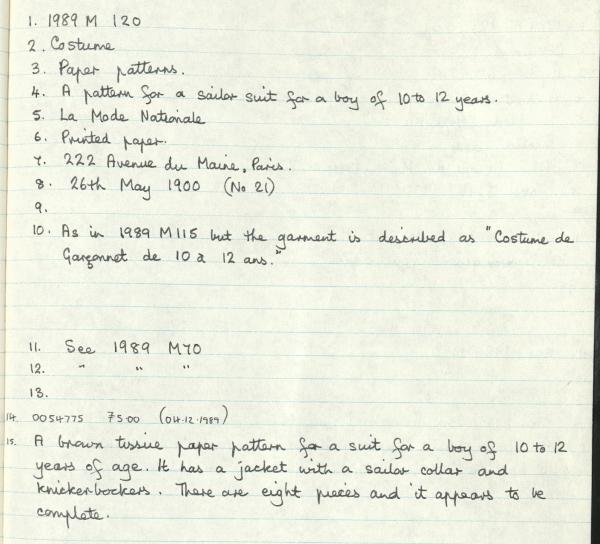 1. 1989 M 120
2. Costume
3. Paper patterns.
4. A pattern for a sailor suit for a boy of 10 to 12 years.
5. La Mode Nationale
6. Printed paper.
7. 222 Avenue du Maine, Paris.
8. 26th May 1900 (No 21)
9.
10. As in 1989 M115 but the garment is described as "Costume de
Garçonnet de 10 à 12 ans."
11. See 1989 M70
12. " " "
13.
14. 0054775 75.00 (04.12.1989)
15. A brown tissue paper pattern for a suit for a boy of 10 to 12
years of age. It has a jacket with a sailor collar and
knickerbockers. There are eight pieces and it appears to be
complete.